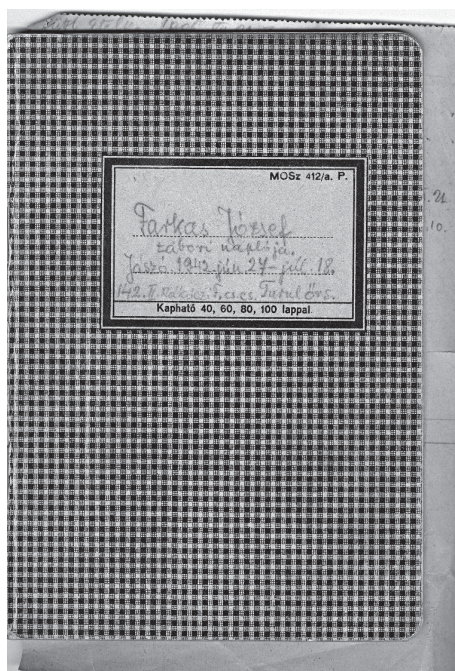 MOSz 412/a. P.
Farkas József
tábori naplója.
Jászó 1943. jún 27 – júl. 18.
142. II. Rákóczi F. cs. cs. Turul őrs.
Kapható 40, 60, 80, 100 lappal.